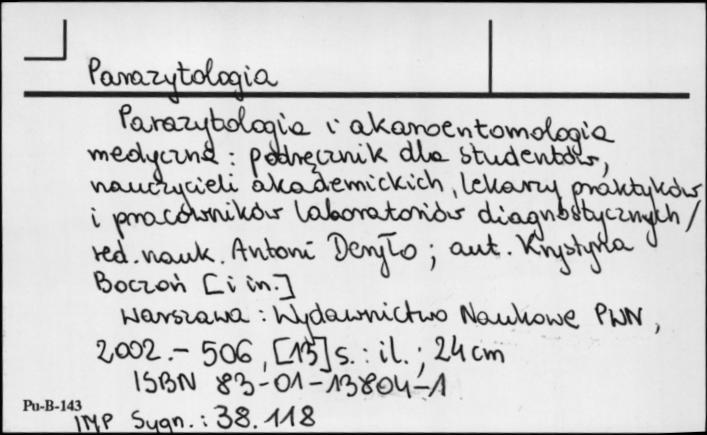 Parazytologia
Parazytologia i akaroentomologia
medyczna : podręcznik dla studentów,
nauczycieli akademickich, lekarzy praktyków
i pracowników laboratoriów diagnostycznych /
red. nauk. Antoni Deryło ; aut. Krystyna
Boczoń [i in.]
Warszawa : Wydawnictwo Naukowe PWN,
2002. - 506, [13] s. : il. ; 24 cm
ISBN 83-01-13804-1
Pu-B-143
IMP Sygn. : 38.118